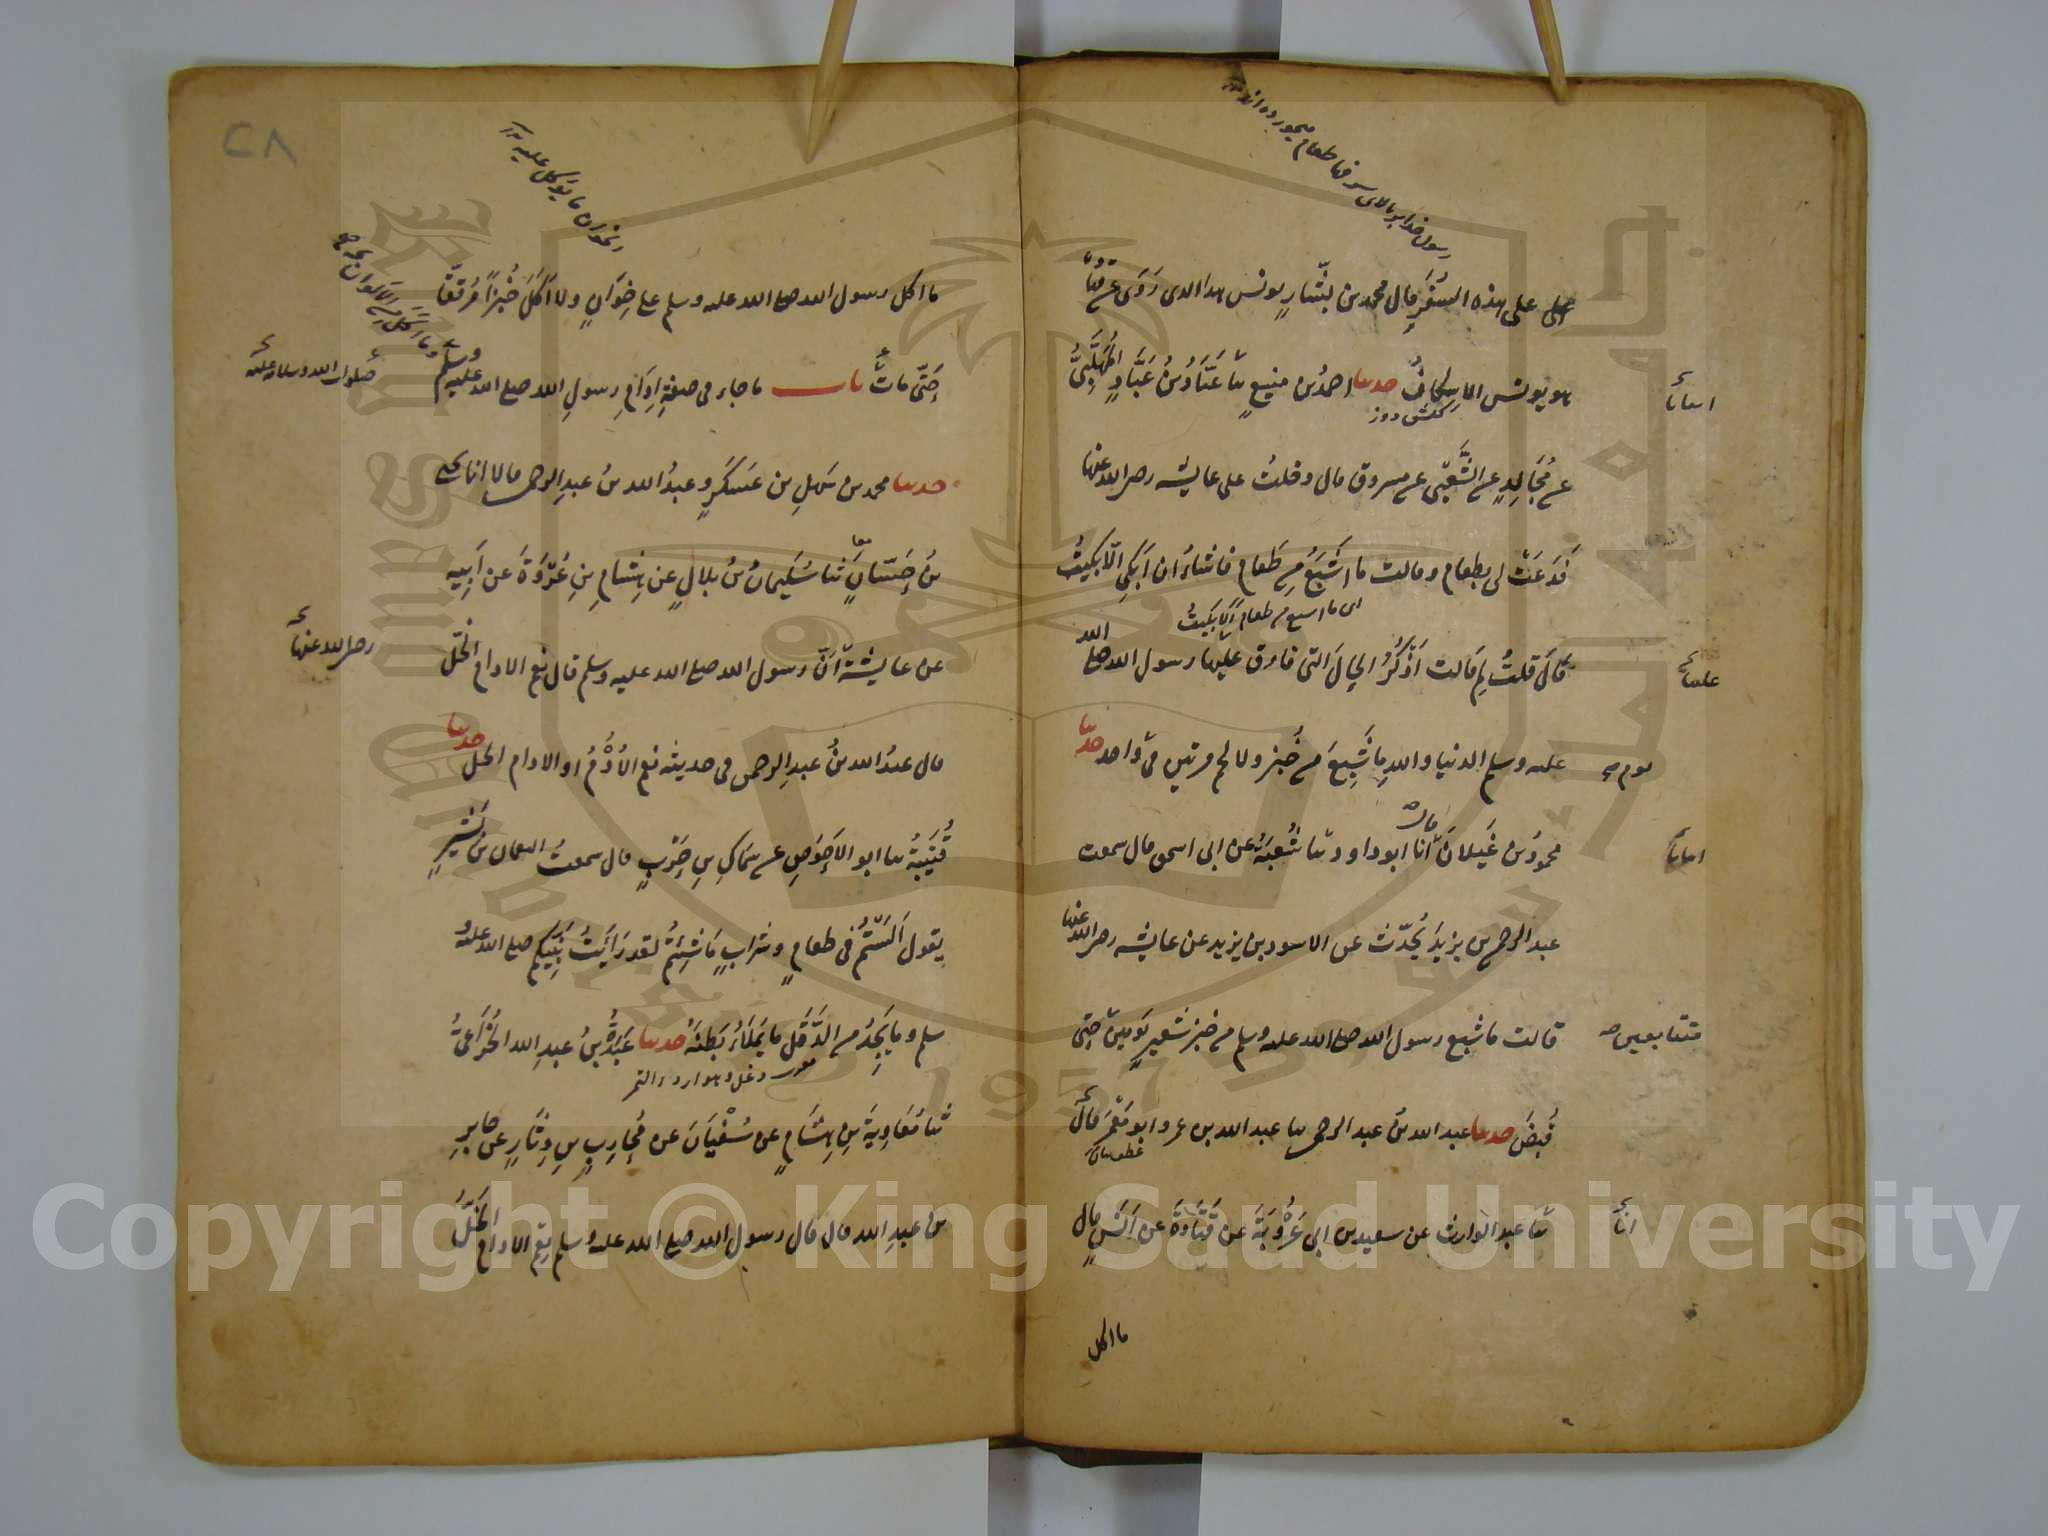 رسول خدا بر بالای سفرها طعام میخورده اند
احلى على هذه السُفَرِ قال محمد بن بَشّارٍ يونس هذا الذى رَوَى عن قتادة
هو يونس الاسكافُ حدثنا احمدُ بن منيعٍ ثنا عَبّادُ بنُ عَبّادٍ المُهَلَّبِىُّ
كفش دوز
انبانا
عن مُجَالِدٍ عن الشَّعْبِى عن مسروق قال دخلتُ على عايشه رضى الله عنها
فَدَعَتْ لى بطعام وقالت ما اَشْبَعُ من طَعام فاشاءُ ان اَبْكِى الّا بكيتُ
اى ما اشبع من طعام الا بكيتُ
قال قلتُ لِمَ قالت اَذْكُرُ الحالَ التى فارق عليها رسول الله صلى الله
عليه وسلم الدنيا والله ما شَبِعَ من خُبز ولا لحم مرتين فى واحد حدثنا
يوم صح
محمودُ بن غَيلانَ انا ابو داود ثنا شُعْبَةُ عن ابى اسحق قال سمعت
قال
انبانا
عبد الرحمن بن يزيدَ يُحدّث عن الاسود بن يزيد عن عايشه رضى الله عنها
قالت ما شبع رسول الله صلى الله عليه وسلم من خبز شعيرٍ يَومين حتى
متتابعين صح
قُبِضَ حدثنا عبد الله بنُ عبد الرحمن ثنا عبد الله بن عمرو ابو مَعْمَر قال
ثنا عبد الوارث عن سعيد بن ابى عَرُوبَةَ عن قَتَادَةَ عن اَنَسٍ قال
انا
ما اكل
٢٨
الخوان ما يؤكل عليه
ما اكل رسول الله صلى الله عليه وسلم على خِوَانٍ ولا اَكَلَ خُبْزًا مُرَقّقًا
حَتّى ماتَ باب ما جاء فى صفةِ اِدَامِ رسولِ الله صلى الله عليه وسلم
صلوات الله وسلامه عليه
حدثنا محمد بن سَهلِ بن عَسكَرٍ وعبدُ الله بنُ عبدِ الرحمن قالا انا يحيى
بنُ حَسّانٍ ثنا سُلَيمانُ بنُ بلالٍ عن هِشامِ بنِ عُرْوَةَ عن اَبِيهِ
عن عايشةَ اَنّ رسول الله صلى الله عليه وسلم قال نِعم الادام الخلّ
رضى الله عنها
قال عبدُ الله بنُ عبدِ الرحمن فى حديثه نعم الاُدُمُ او الادام الخل حدثنا
قُتَيْبَةُ ثنا ابو الاَحْوَصِ عن سِمَاكِ بنِ حَرْبٍ قال سمعتُ النعمان بن بَشِيرٍ
يقول اَلَسْتُمْ فى طعامٍ وشَرابٍ مَا شِئْتُمْ لقد رَاَيْتُ نَبِيّكم صلى الله عليه
وسلم وما يَجِدُ من الدَّقَلِ ما يَمْلَاُ بَطْنَهُ حدثنا عَبْدَةُ بنُ عبدِ الله الخُزَاعِىُّ
ثنا مُعَاوِيَةُ بنِ هِشَامٍ عن سُفْيَانَ عن مُحَارِبِ بنِ دِثَارٍ عن جابِرِ
بن عبدِ الله قال قال رسول الله صلى الله عليه وسلم نِعم الادام الخَلُّ
1957
Copyright © King Saud University